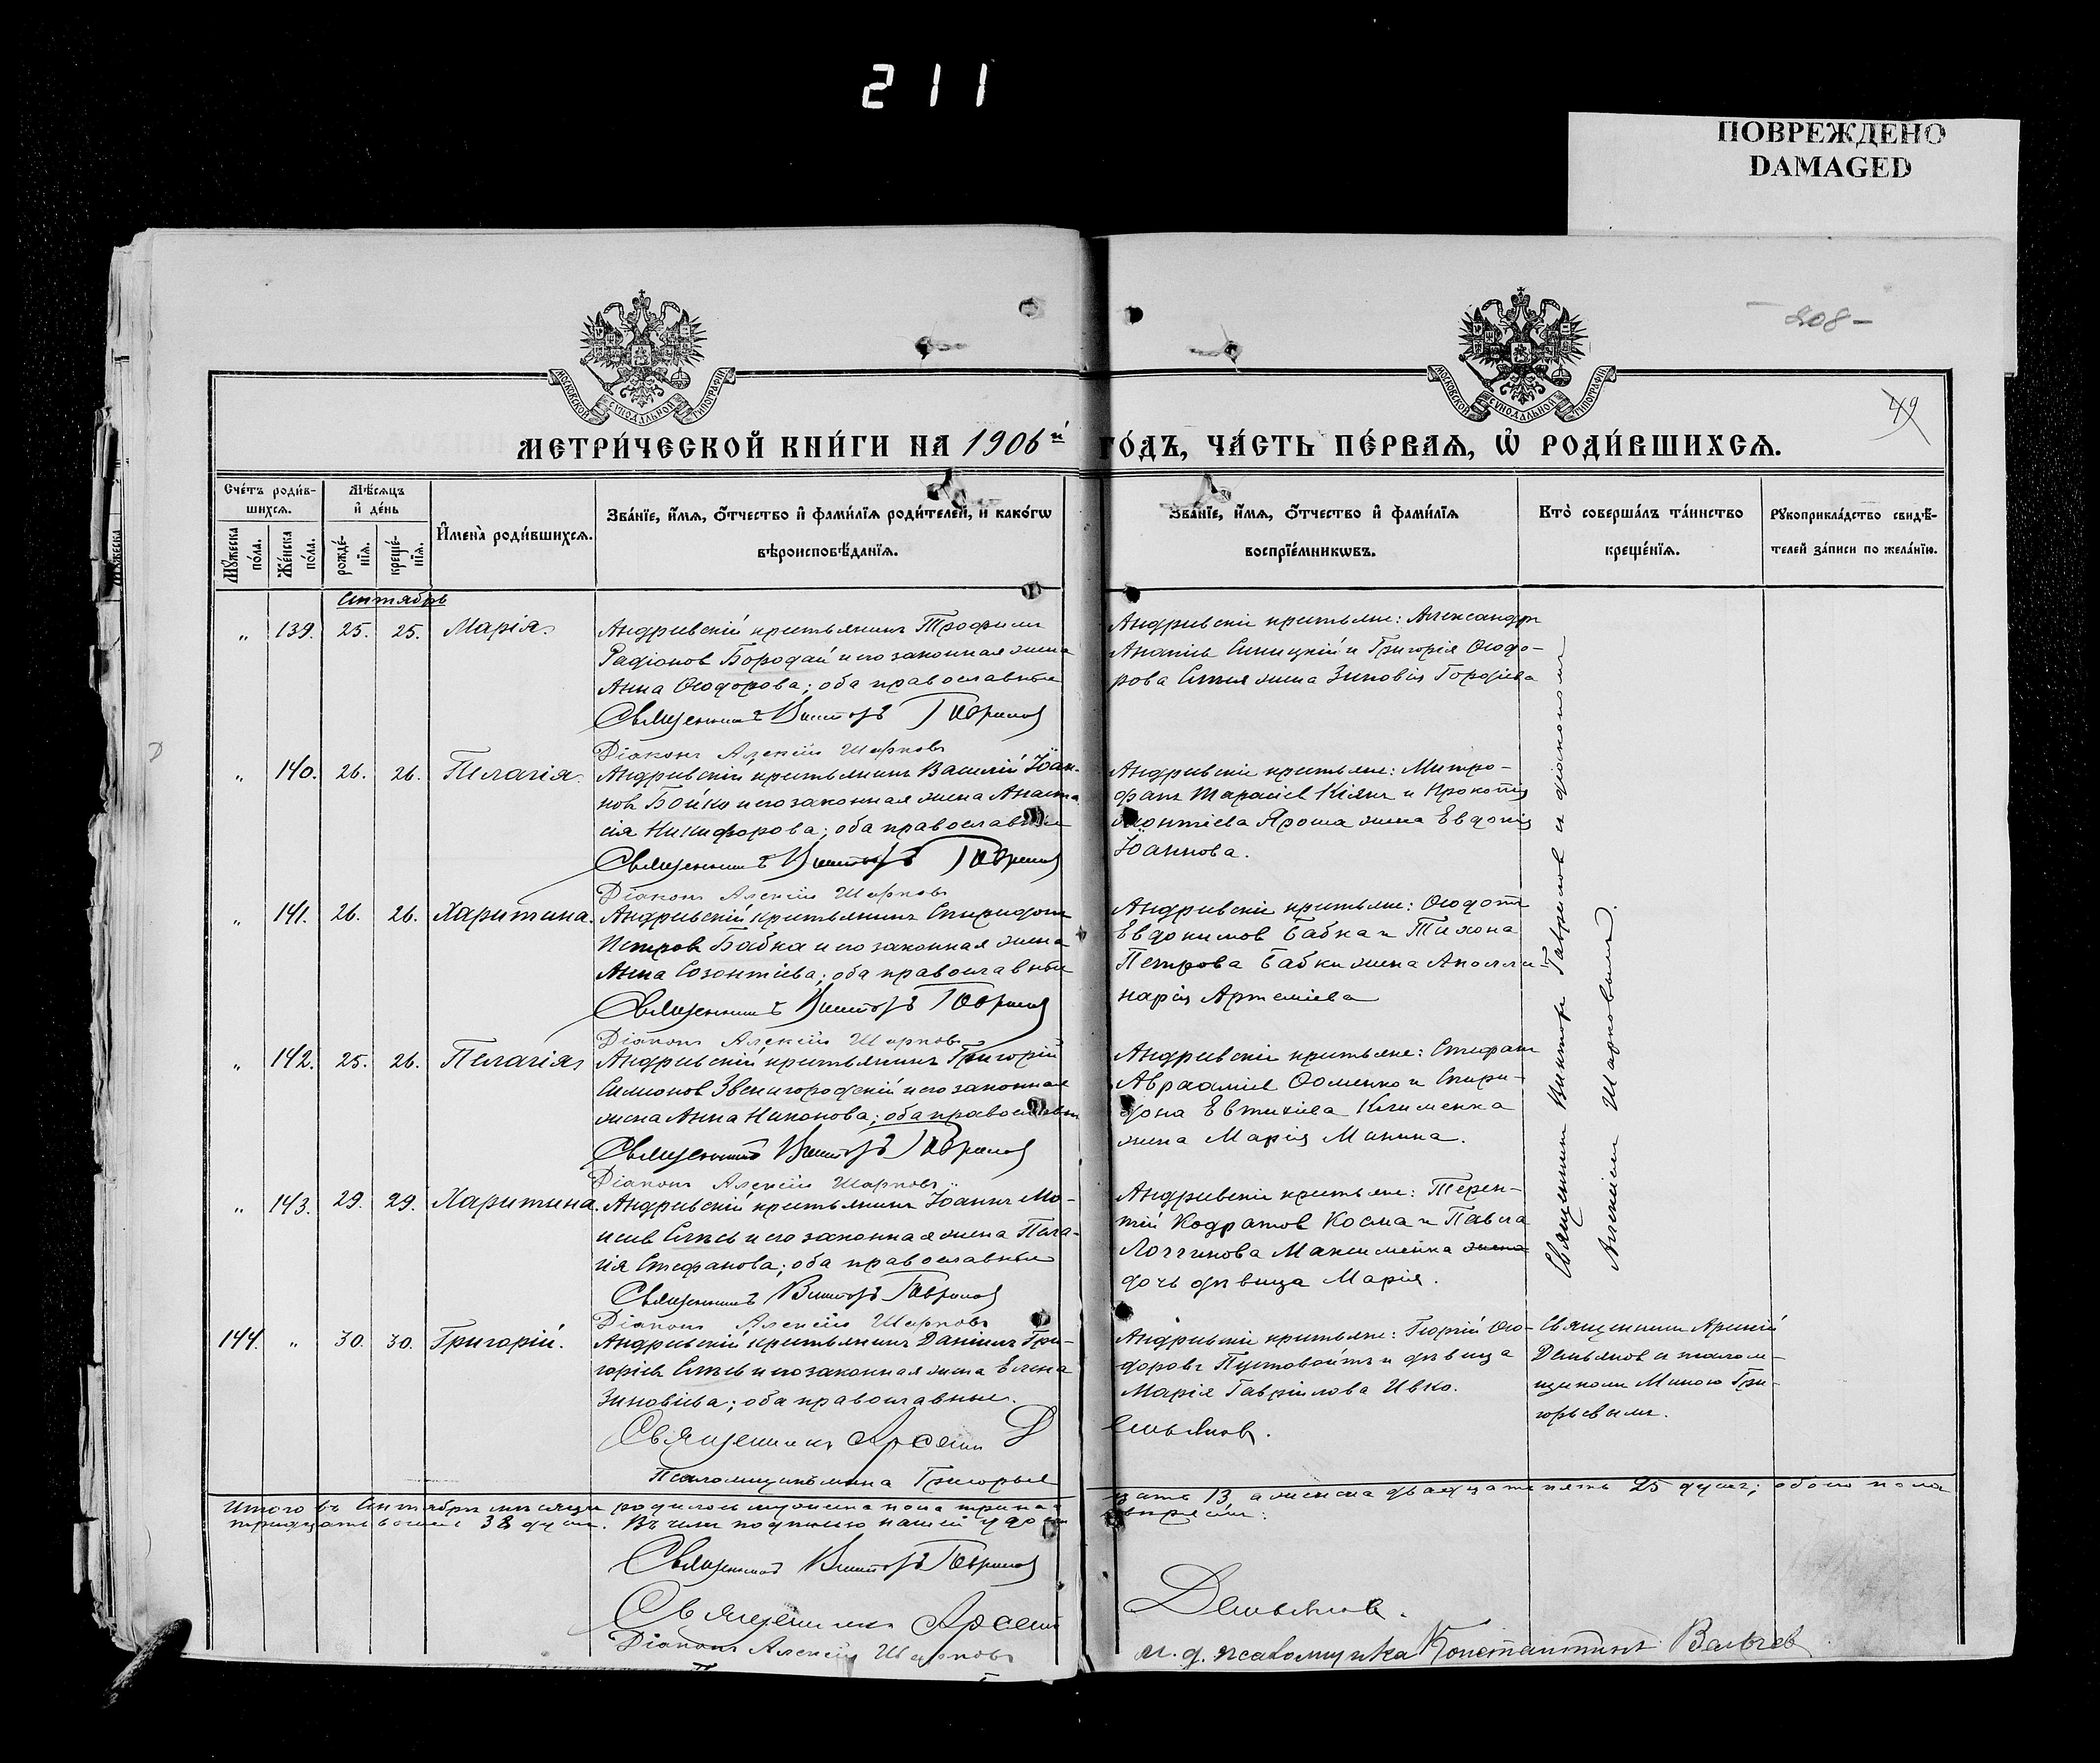 211
ПОВРЕЖДЕНО
DAMAGED
208-
49
МОСКОВСКОЙ СѴНОДАЛЬНОЙ ТИПОГРАФІИ
МОСКОВСКОЙ СѴНОДАЛЬНОЙ ТИПОГРАФІИ
МЕТРИ́ЧЕСКОЙ КНИ́ГИ НА 1906й ГО́ДЪ, ЧА́СТЬ ПЕ́РВАЯ, Ѡ҆ РОДИ́ВШИХСЯ.
Сче́тъ роди́в-
шихся.
Мꙋ́жеска
по́ла.
Же́нска
по́ла.
Мѣ́сяцъ
и҆ де́нь
рожде́-
нїя.
креще́-
нїя.
И҆мена̀ роди́вшихся.
Зва́нїе, и҆́мя, ѻ҆́тчество и҆ фами́лїя роди́телей, и како́гѡ
вѣроисповѣ́данїя.
Зва́нїе, и҆́мя, ѻ҆́тчество и҆ фами́лїя
воспрїе́мникѡвъ.
Кто̀ соверша́лъ та́инство
креще́нїя.
Рꙋкоприкла́дство свидѣ́-
телей за́писи по жела́нїю.
Сентябрь
" 139. 25. 25. Марія.
Андреевскій крестьянинъ Трофимъ
Радіонов Бородай и его законная жена
Анна Ѳеодорова; оба православные
Священникъ Викторъ Гаврилов
Діаконъ Алексій Шарковъ
Андреевскіе крестьяне: Александръ
Синицкій и Григорія Ѳеодо-
рова жена Зиновія
" 140. 26. 26. Пелагія
Андреевскій крестьянинъ Василій Іоан-
нов Бойко и его законная жена Анаста
сія Никифорова; оба православные
Священникъ Викторъ Гаврилов
Діаконъ Алексій Шарковъ
Андреевскіе крестьяне: Митро-
фанъ Тарасіев Кіянъ и Прокопія
Леонтіева Яроша жена Евдокія
Іоаннова.
" 141. 26. 26. Харитина.
Андреевскій крестьянинъ Спиридонъ
Петров Бабка и его законная жена
Анна Созонтіева; оба православные
Священникъ Викторъ Гаврилов
Діаконъ Алексій Шарковъ
Андреевскіе крестьяне: Ѳеодотъ
Евдокимов Бабка и Тихона
Петрова Бабки жена Аполли-
нарія Артеміева
" 142. 25. 26. Пелагія
Андреевскій крестьянинъ Григорій
Симонов Звенигородскій и его законная
жена Анна Никонова; оба православны
Священникъ Викторъ Гаврилов
Діаконъ Алексій Шарковъ
Андреевскіе крестьяне: Стефанъ
Авраміев Ѳоменко и Спири-
дона Евтихіева Клименка
жена Марія Минина.
" 143. 29. 29. Харитина.
Андреевскій крестьянинъ Іоаннъ Мо-
исеев и его законная жена Пела-
гія Стефанова; оба православные
Священникъ Викторъ Гаврилов
Діаконъ Алексій Шарковъ
Андреевскіе крестьяне: Терен-
тій Кодратов Косма и Павла
Логгинова Максименка жена
дочь дѣвица Марія.
Священник Виктор Гаврилов и діаконом
Алексіем Шарковымъ.
144. " 30. 30. Григорій.
Андреевскій крестьянинъ Даніилъ Гри-
горіев и его законная жена Елена
Зиновіева; оба православные.
Священникъ Арсеній Д
емьянов.
Псаломщикъ Мина Григорьев
Андреевскіе крестьяне: Георгій Ѳео-
доровъ Пустовойтъ и дѣвица
Марія Гавріилова Ивко.
Священник Арсеній
Демьянов и псалом-
щиком Миною Гри-
горьевымъ.
Итого въ Сентябрѣ мѣсяцѣ родилось мужеска пола тринад цать 13, а женска двадцать пять 25 душъ; обоего пола
тридцать восемь 38 душъ. Въ чемъ подписью нашей удос товѣряемъ:
Священникъ Викторъ Гаврилов
Священникъ Арсеній Демьянов.
Діаконъ Алексій Шарковъ
и. д. псаломщика Константинъ